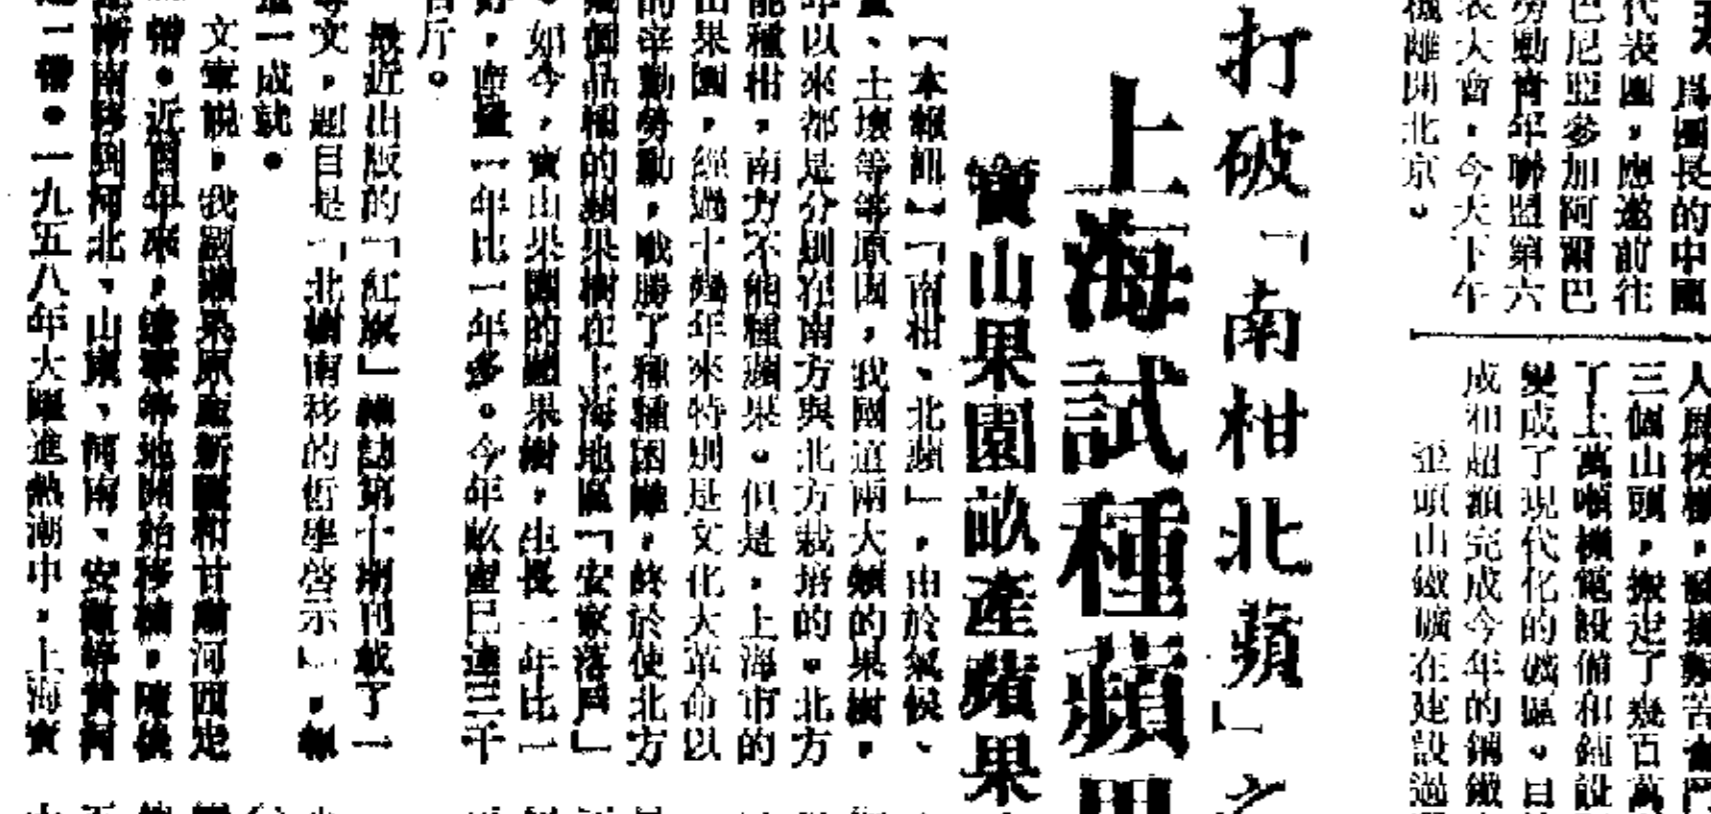 為團長的中國
代表團，應邀前往
巴尼亞參加阿爾巴
勞動青年聯盟第六
表大會，今天下午
機離開北京。
三個山頭，搬走了幾百萬
了上萬噸機電設備和鋪設
變成了現代化的礦區。目
成和超額完成今年的鋼鐵
頭山鐵礦在建設過
打破「南柑北蘋」之
上海試種蘋果
寶山果園畝產蘋果
【本報訊】「南柑、北蘋」，由於氣候、
、土壤等等原因，我國這兩大類的果樹，
年以來都是分別在南方與北方栽培的。北方
能種柑，南方不能種蘋果。但是，上海市的
山果園，經過十幾年來特別是文化大革命以
的辛勤勞動，戰勝了種種困難，終於使北方
幾個品種的蘋果樹在上海地區「安家落戶」
。如今，寶山果園的蘋果樹，生長一年比一
好，產量一年比一年多。今年畝產已達三千
百斤。
最近出版的「紅旗」雜誌第十期刊載了一
文，題目是「北樹南移的哲學啓示」，報
這一成就。
文章說，我國蘋果原產新疆和甘肅河西走
。近百年來，遼寧等地開始移植，隨後
漸南移到河北、山東、河南、安徽等黃河
一帶。一九五八年大躍進熱潮中，上海寶